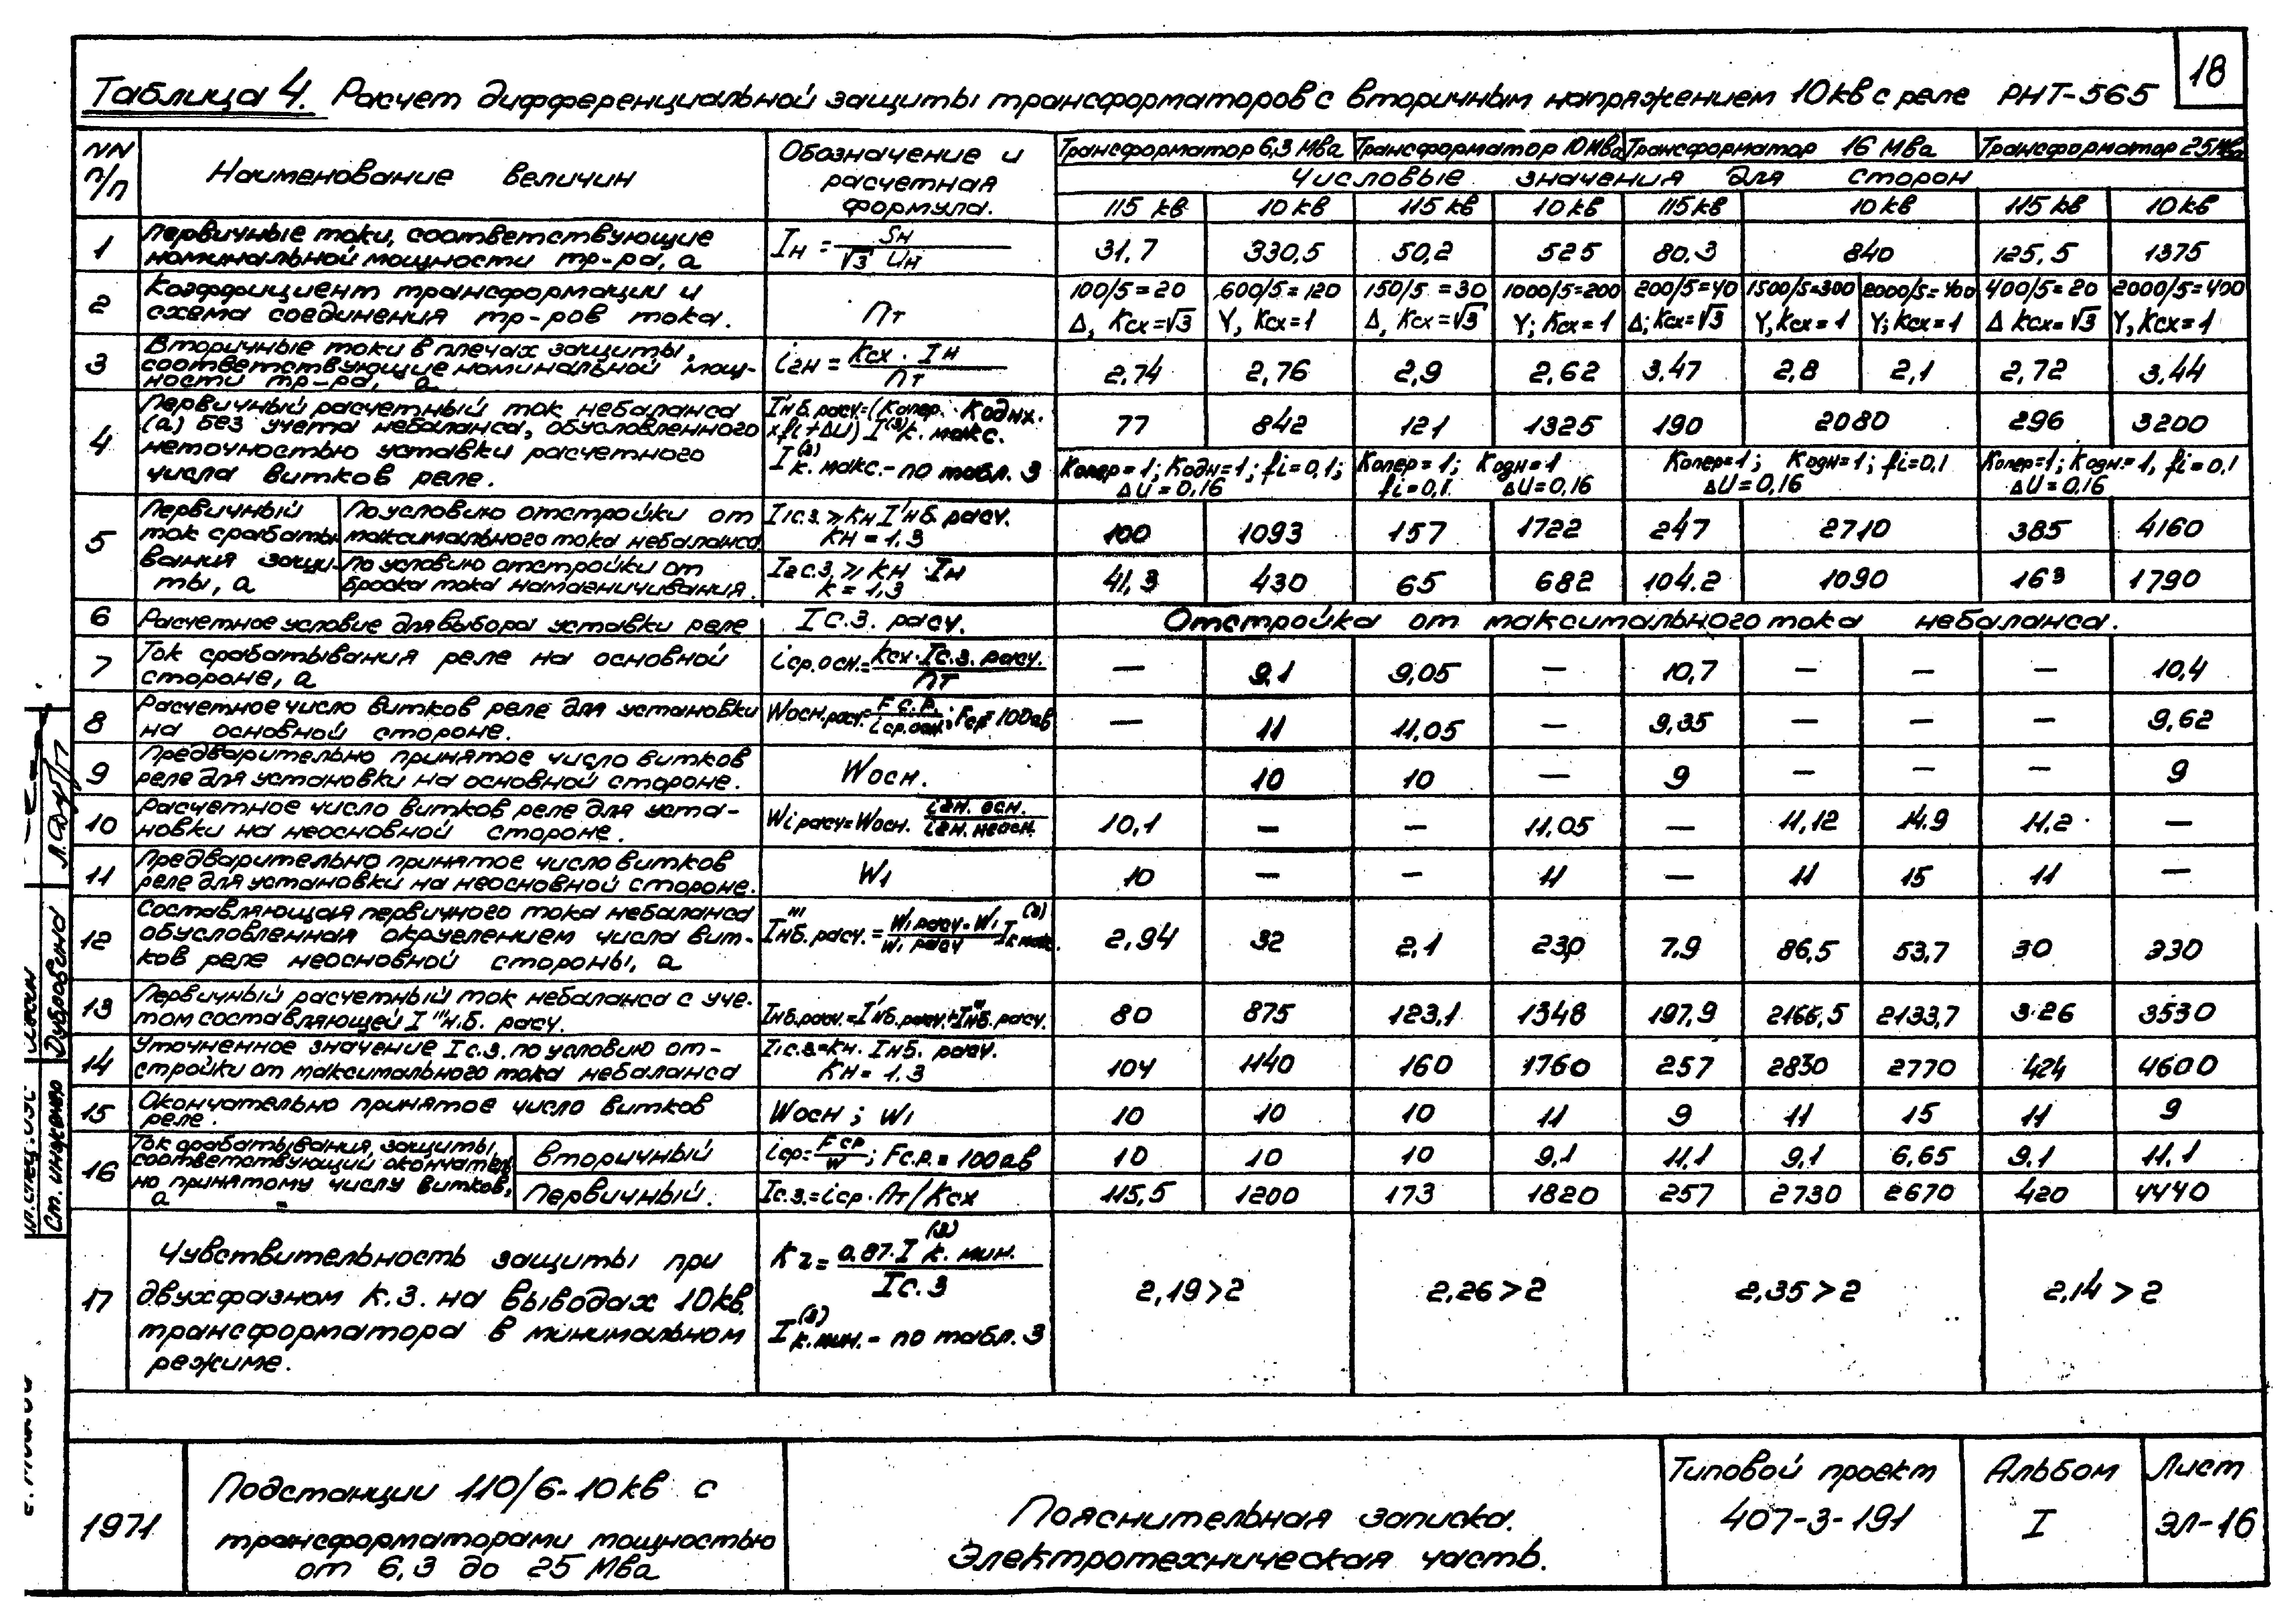 18
Таблица 4. Расчет дифференциальной защиты трансформаторов с вторичным напряжением 10кв с реле РНТ-565
NN п/п | Наименование величин | Обозначение и расчетная формула. | Трансформатор 6,3 Мва | Трансформатор 10 Мва | Трансформатор 16 Мва | Трансформатор 25 Мва
Числовые значения для сторон
115 кв | 10 кв | 115 кв | 10 кв | 115 кв | 10 кв | 115 кв | 10 кв
1 | Первичные токи, соответствующие номинальной мощности тр-ра, а | Iн = Sн / √3 Uн | 31,7 | 330,5 | 50,2 | 525 | 80,3 | 840 | 125,5 | 1375
2 | Коэффициент трансформации и схема соединения тр-ров тока. | Пт | 100/5=20 Δ, Ксх=√3 | 600/5=120 Y, Ксх=1 | 150/5=30 Δ, Ксх=√3 | 1000/5=200 Y; Ксх=1 | 200/5=40 Δ; Ксх=√3 | 1500/5=300 Y, Ксх=1 | 2000/5=400 Y; Ксх=1 | 400/5=20 Δ Ксх=√3 | 2000/5=400 Y, Ксх=1
3 | Вторичные токи в плечах защиты, соответствующие номинальной мощ-ности тр-ра, а | i2н = Ксх · Iн / Пт | 2,74 | 2,76 | 2,9 | 2,62 | 3,47 | 2,8 | 2,1 | 2,72 | 3,44
4 | Первичный расчетный ток небаланса (а) без учета небаланса, обусловленного неточностью уставки расчетного числа витков реле. | I'нб.расч=(Копер. Кодн х. х fi + ΔU) I(3)к. макс. I(3)к. макс.- по табл. 3 | 77 | 842 | 121 | 1325 | 190 | 2080 | 296 | 3200
Копер=1; Кодн=1; fi=0,1; ΔU=0,16 | Копер=1; Кодн=1 fi=0,1 ΔU=0,16 | Копер=1; Кодн=1; fi=0,1 ΔU=0,16 | Копер=1; Кодн.=1, fi=0,1 ΔU=0,16
5 | Первичный ток срабаты-вания защи-ты, а | По условию отстройки от максимального тока небаланса. | I1с.з. ⩾ Кн I'нб. расч. Кн = 1,3 | 100 | 1093 | 157 | 1722 | 247 | 2710 | 385 | 4160
По условию отстройки от броска тока намагничивания. | I2с.з. ⩾ Кн · Iн к = 1,3 | 41,3 | 430 | 65 | 682 | 104.2 | 1090 | 163 | 1790
6 | Расчетное условие для выбора уставки реле | Iс.з. расч. | Отстройка от максимального тока небаланса.
7 | Ток срабатывания реле на основной стороне, а | iср.осн.= Ксх · Iс.з. расч. / Пт | — | 9,1 | 9,05 | — | 10,7 | — | — | — | 10,4
8 | Расчетное число витков реле для установки на основной стороне. | Wосн.расч.= Fс.р. / iср.осн.; Fср=100ав | — | 11 | 11,05 | — | 9,35 | — | — | — | 9,62
9 | Предварительно принятое число витков реле для установки на основной стороне. | Wосн. | 10 | 10 | — | 9 | — | — | — | 9
10 | Расчетное число витков реле для уста-новки на неосновной стороне. | Wi расч=Wосн. i2н. осн. / i2н. неосн. | 10,1 | — | — | 11,05 | — | 11,12 | 14.9 | 11,2 | —
11 | Предварительно принятое число витков реле для установки на неосновной стороне. | W1 | 10 | — | — | 11 | — | 11 | 15 | 11 | —
12 | Составляющая первичного тока небаланса обусловленная округлением числа вит-ков реле неосновной стороны, а | I'''нб.расч.= W1 расч - W1 / W1 расч I(3)к макс. | 2,94 | 32 | 2,1 | 230 | 7.9 | 86,5 | 53,7 | 30 | 330
13 | Первичный расчетный ток небаланса с уче-том составляющей I'''н.б. расч. | Iнб.расч.=I'нб.расч.+I'''нб.расч. | 80 | 875 | 123,1 | 1348 | 197,9 | 2166,5 | 2133,7 | 326 | 3530
14 | Уточненное значение Iс.з. по условию от-стройки от максимального тока небаланса | I1с.з.=Кн. Iнб. расч. Кн = 1.3 | 104 | 1140 | 160 | 1760 | 257 | 2830 | 2770 | 424 | 4600
15 | Окончательно принятое число витков реле. | Wосн ; W1 | 10 | 10 | 10 | 11 | 9 | 11 | 15 | 11 | 9
16 | Ток срабатывания, защиты, соответствующий окончатель но принятому числу витков, а | Вторичный | iср= Fср / W ; Fс.р.=100ав | 10 | 10 | 10 | 9,1 | 11,1 | 9,1 | 6,65 | 9.1 | 11.1
Первичный. | Iс.з.=iср · Пт/Ксх | 115,5 | 1200 | 173 | 1820 | 257 | 2730 | 2670 | 420 | 4440
17 | Чувствительность защиты при двухфазном к.з. на выводах 10кв. трансформатора в минимальном режиме. | К2= 0.87·I(3) к. мин. / Iс.з I(3)к.мин.- по табл. 3 | 2,19>2 | 2,26>2 | 2,35>2 | 2,14>2
Ст. инженер Дубровина
1971
Подстанции 110/6-10кв с
трансформаторами мощностью
от 6,3 до 25 Мва
Пояснительная записка.
Электротехническая часть.
Типовой проект
407-3-191
Альбом
I
Лист
ЭЛ-16